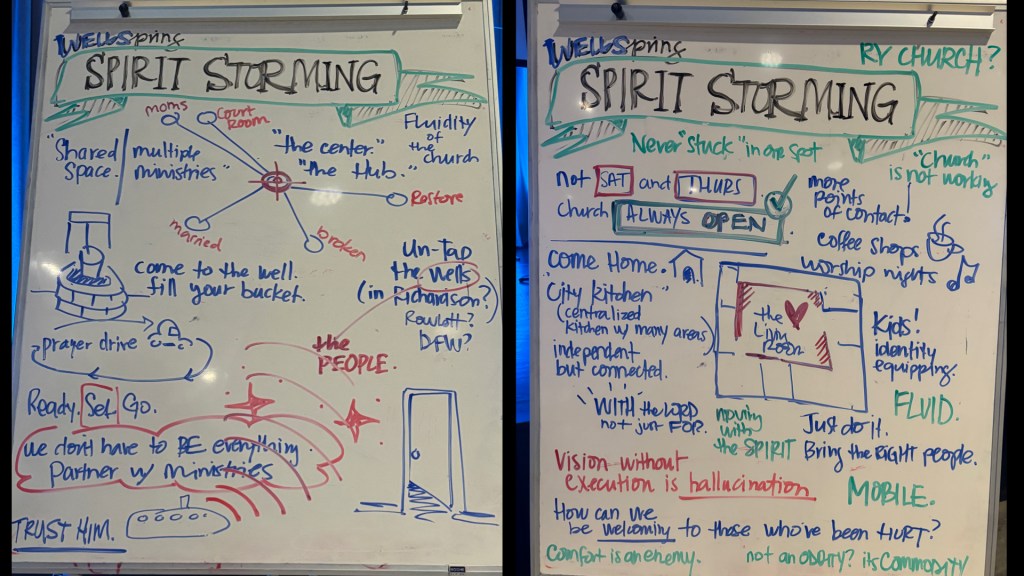 WELLSpring
SPIRIT STORMING
moms
Court
Room
"Shared
Space."
multiple
ministries"
"the center."
"the Hub."
Fluidity
of
the
church
Restore
married
broken
come to the well.
fill your bucket.
Un-Tap
the wells
(in Richardson?)
Rowlett?
DFW?
prayer drive
the
PEOPLE.
Ready. Set Go.
we don't have to BE everything.
Partner w/ ministries
TRUST HIM.
WELLSpring
RY CHURCH?
SPIRIT STORMING
Never "stuck" in one spot
"Church"
is not working
not SAT and THURS
church ALWAYS OPEN
more
points
of contact.
coffee shops
worship nights
come Home.
"City kitchen"
(centralized
kitchen w/ many areas)
independent
but connected.
the
Living
Room
Kids!
identity
equipping.
FLUID.
WITH the LORD
not just FOR.
moving
with
the SPIRIT
Just do it.
Bring the RIGHT people.
Vision without
execution is hallucination
MOBILE.
How can we
be welcoming to those who've been HURT?
Comfort is an enemy.
not an ODDITY? its COMMODITY